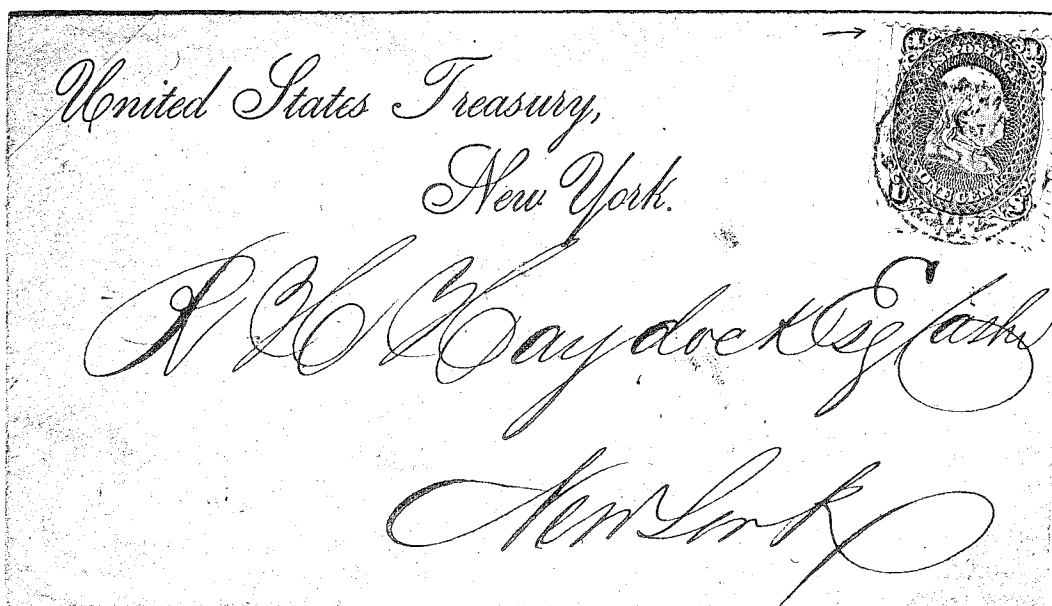 United States Treasury,
New York.
R H Haydock Esq Cashr
New York
1 1
ONE CENT
U S